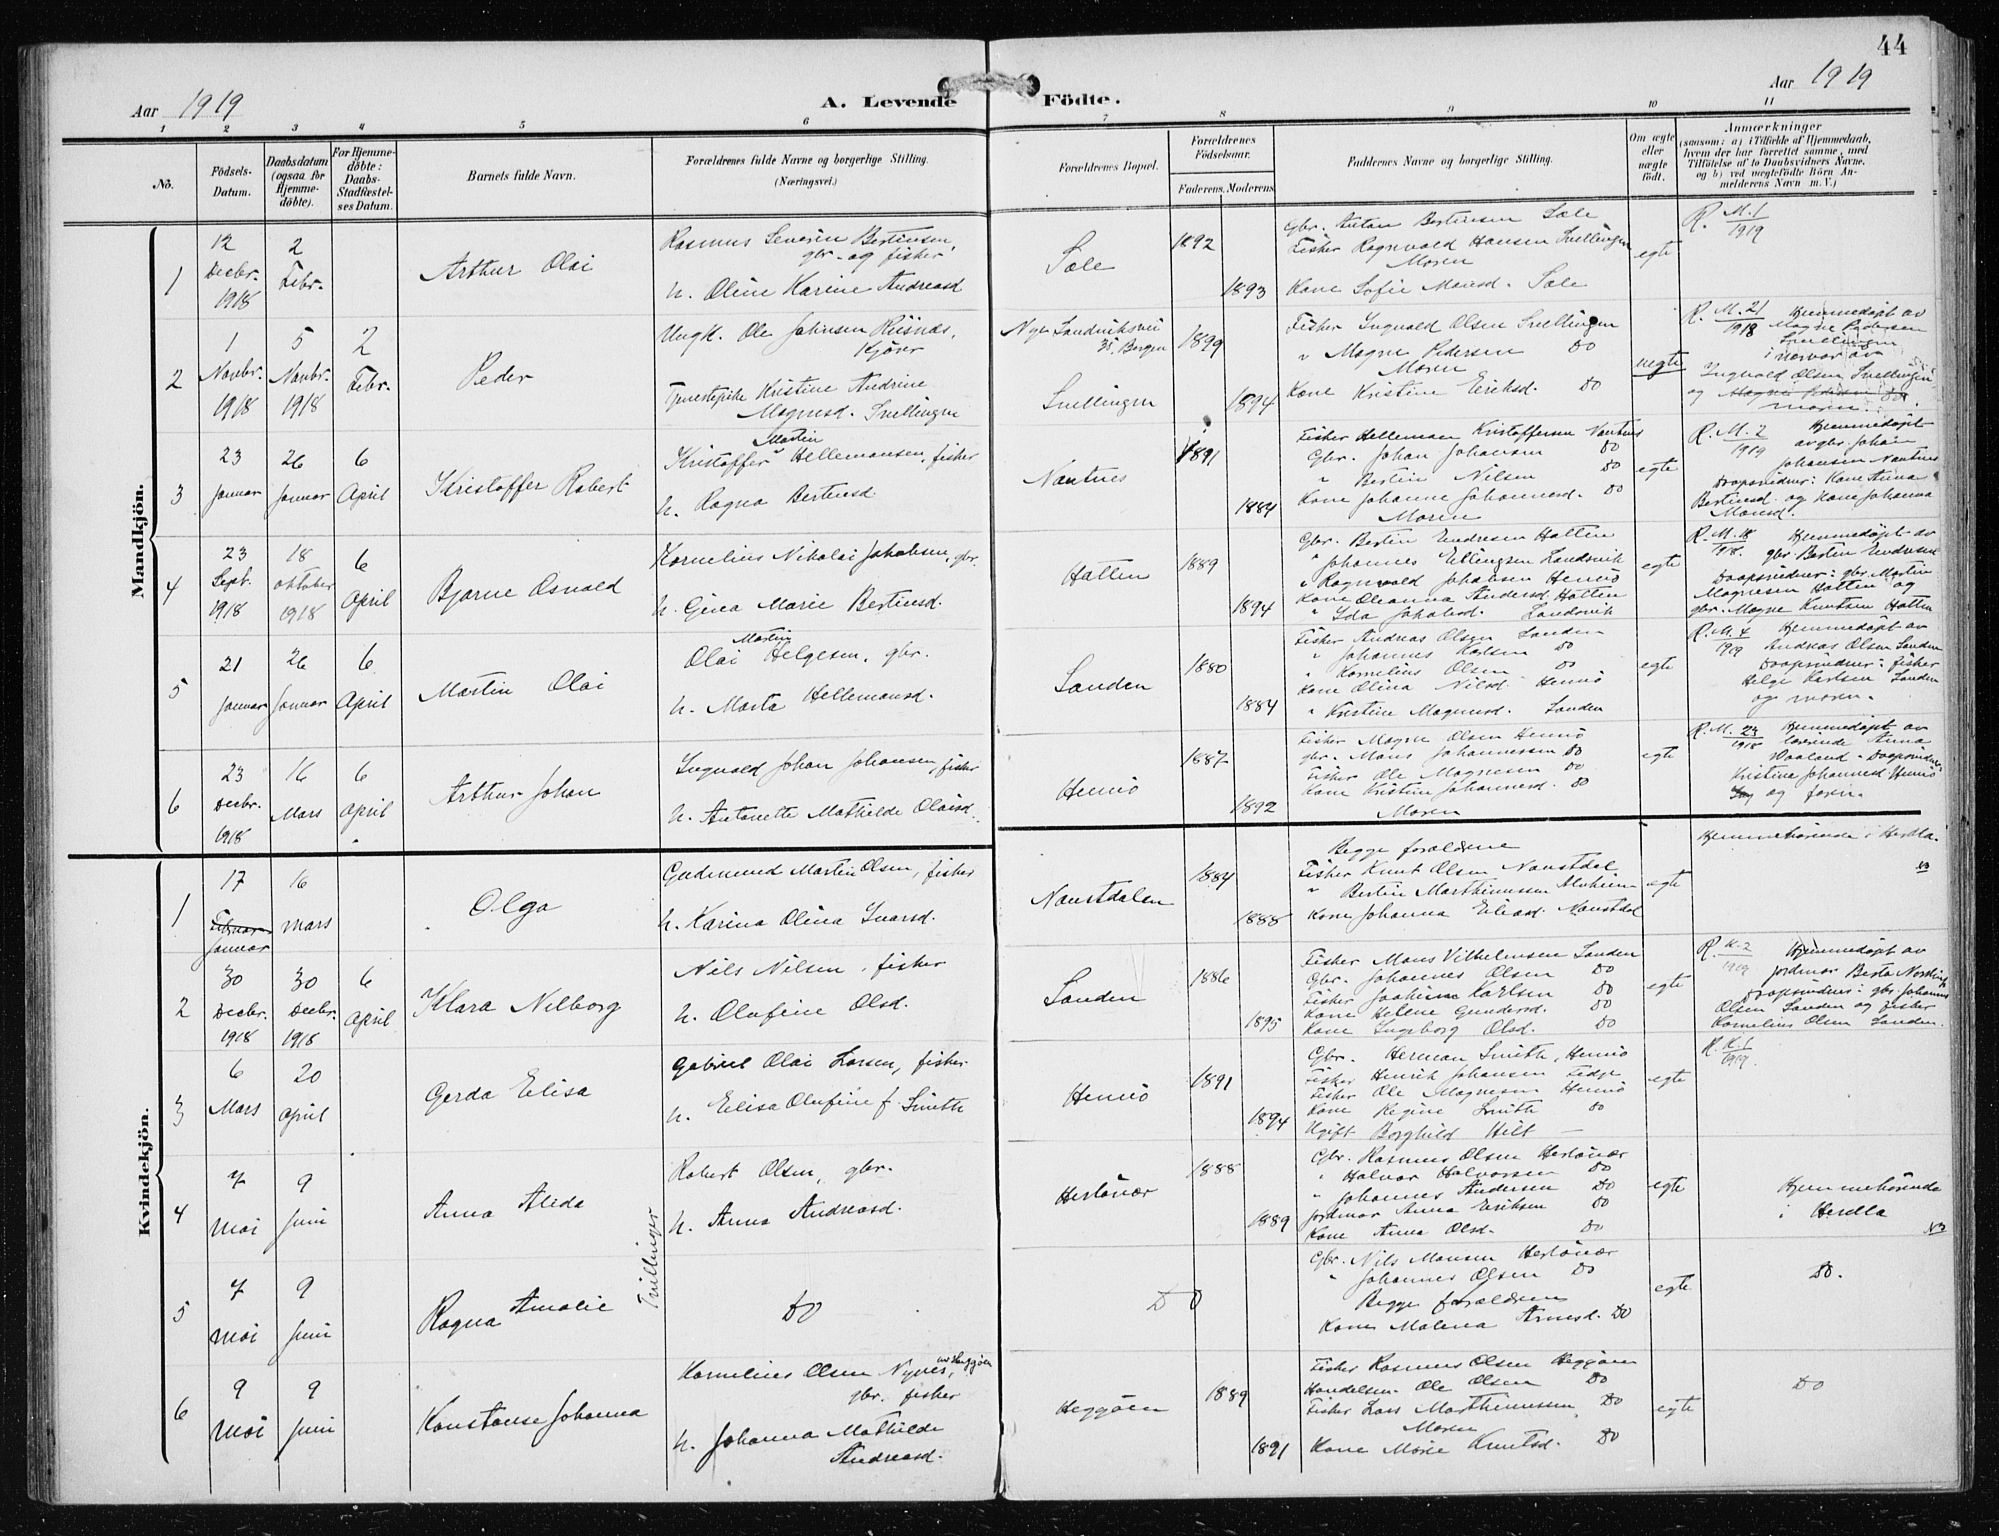 44
Aar 1919
A. Levende Födte.
Aar 1919
1 2 3 4 5 6 7 8 9 10 11
No.
Födsels-Datum.
Daabsdatum (ogsaa for Hjemmedöbte).
For Hjemmedöbte: Daabs-Stadfæstelses Datum.
Barnets fulde Navn.
Forældrenes fulde Navne og borgerlige Stilling.
(Næringsvei.)
Forældrenes Bopæl.
Forældrenes Födselsaar.
Faderens. Moderens.
Faddernes Navne og borgerlige Stilling.
Om ægte eller uægte födt.
Anmærkninger
(saasom: a) i Tilfælde af Hjemmedaab, hvem der har forrettet samme, med Tilföielse af to Daabsvidners Navne, og b) ved uægtefödte Börn Anmelderens Navn m. V.)
Mandkjön.
1
12 Decbr. 1918
2 Febr.
Arthur Olai
Rasmus Severin Bertinsen,
gbr. og fisker
h. Oline Karine Andreasd
Sæle
1892
1893
Gbr. Antan Bertinsen Sæle
Fisker Ragnvald Hansen Snellingen
Moren
Kone Sofie Monsd. Sæle
egte
R. M. 1
1919
2
1 Novbr. 1918
5 Novbr. 1918
2 Febr.
Peder
Ungk. Ole Johnsen Risnæs,
Tjenestepike Kristine Andrine
Magnesd. Snellingen
Nye Sandviksvei
35, Bergen
Snellingen
1899
1894
Fisker Ingvald Olsen Snellingen
" Magne Pedersen Do
Moren
Kone Kristine Eriksd. Do
uegte
R. M. 21
1918
Hjemmedøpt av
Magne Pedersen
Snellingen
i nærvær av
Ingvald Olsen Snellingen
og Magne Pedersen Do
moren.
3
23 Januar
26 Januar
6 April
Kristoffer Robert
Martin
Kristoffer Hellemansen, fisker
h. Ragna Bertinsd
Nautnes
1891
1884
Fisker Helleman Kristoffersen Nautnes
Gbr. Johan Johansen Do
" Bertin Nilsen Do
Kone Johanne Johannesd. Do
Moren
egte
R. M. 2
1919
Hjemmedøpt
av gbr. Johan
Johansen Nautnes
Daapsvidner: Kone Anna
Bertinsd. og Kone Johanna
Monsd.
4
23 Sept. 1918
18 oktober 1918
6 April
Bjarne Osvald
Kornelius Nikolai Jakobsen, gbr.
h. Gina Marie Bertinsd.
Hatten
1889
1894
Gbr. Bertin Endresen Hatten
" Johannes Ellingsen Landsvik
" Ragnvald Johansen Hennö
Kone Oleanna Andersd Hatten
" Ida Jakobsd. Landsvik
egte
R. M. 18
1918.
Hjemmedøpt av
gbr. Bertin Endresen
Daapsvidner: gbr. Martin
Magnesen Hatten og
gbr. Magne Knutsen Hatten
5
21 Januar
26 Januar
6 April
Martin Olai
Martin
Olai Helgesen, gbr.
h. Marta Hellemansd.
Sanden
1880
1884
Fisker Andreas Olsen Sanden
" Johannes Karlsen Do
" Kornelius Olsen Do
Kone Olina Nilsd Hennö
" Kristine Magnusd. Sanden
egte
R. M. 4
1919
Hjemmedøpt av
Andreas Olsen Sanden
Daapsvidner: fisker
Helge Karlsen Sanden
og moren.
6
23 Decbr. 1918
16 Mars
6 April
Arthur Johan
Ingvald Johan Johansen, fisker
h. Antonette Mathilde Olaisd.
Hennö
1887
1892
Fisker Magne Olsen Hennö
gbr. Mons Johannessen Do
Fisker Ole Magnesen Do
Kone Kristine Johannesd. Do
Moren
egte
R. M. 23
1918
Hjemmedøpt av
lærerinde Anna
Vaaland. Daapsvidner:
Kristina Johannesd Hennö
og faren.
Kvindekjön.
1
17 Februar Januar
16 mars
Olga
Gudmund Martin Olsen, fisker
h. Karina Olina Ivarsd.
Naustdalen
1884
1888
Begge forældrene
Fisker Knut Olsen Naustdal
" Bertin Marthinussen Alvheim
Kone Johanna Eliasd. Naustdal
egte
Hjemmehörende i Herdla.
2
30 Decbr. 1918
30 Decbr. 1918
6 April
Klara Nilborg
Nils Nilsen, fisker
h. Olufine Olsd.
Sanden
1886
1895
Fisker Mons Vilhelmsen Sanden
Gbr. Johannes Olsen Do
Fisker Joakim Karlsen Do
Kone Helene Gundersd. Do
Kone Ingeborg Olsd. Do
egte
R. K. 2
1919
Hjemmedøpt av
jordmor Berta Nordvik
Daapsvidner: gbr. Johannes
Olsen Sanden og fisker
Kornelius Olsen Sanden.
3
6 Mars
20 April
Gerda Elisa
Gabriel Olai Larsen, fisker
h. Elisa Olufine f. Smith
Hennö
1891
1894
Gbr. Herman Smith, Hennö
Fisker Henrik Johansen Fedje
Fisker Ole Magnesen Hennö
Kone Regine Smith Do
Ugift Borghild Hilt —
egte
R. K. 1
1919.
4
7 Mai
9 Juni
Anna Alida
Tvillinger
Robert Olsen, gbr.
h. Anna Andreasd.
Herlövær
1888
1889
Gbr. Rasmus Olsen Herlövær
" Halvor Halvorsen Do
" Johannes Andersen Do
Jordmor Anna Eriksen Do
Kone Anna Olsd. Do
egte
Hjemmehörende
i Herdla
5
7 Mai
9 Juni
Ragna Amalie
Do
Do
Gbr. Nils Monsen Herlövær
" Johannes Olsen Do
Begge forældrene
Kone Malena Arnesd. Do
egte
Do.
6
9 Mai
9 Juni
Konstanse Johanna
Kornelius Olsen Nynes, av Heggöen
gbr. fisker
h. Johanna Mathilde
Andreasd.
Heggöen
1889
1891
Fisker Rasmus Olsen Heggöen
Handelsm. Ole Olsen Do
Fisker Lars Marthinussen Do
Moren
Kone Marie Knutsd. Do
egte
Do